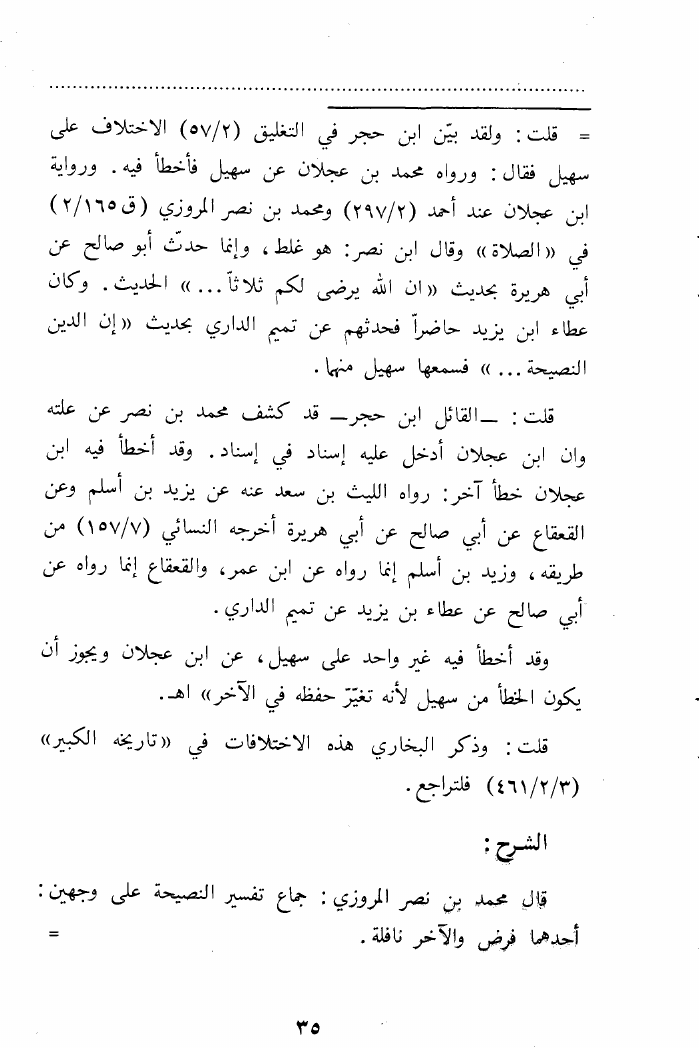 = قلت: ولقد بيّن ابن حجر في التغليق (٥٧/٢) الاختلاف على
سهيل فقال: ورواه محمد بن عجلان عن سهيل فأخطأ فيه. ورواية
ابن عجلان عند أحمد (٢٩٧/٢) ومحمد بن نصر المروزي (ق٢/١٦٥)
في «الصلاة» وقال ابن نصر: هو غلط، وإنما حدّث أبو صالح عن
أبي هريرة بحديث «ان الله يرضى لكم ثلاثاً...» الحديث. وكان
عطاء ابن يزيد حاضراً فحدثهم عن تميم الداري بحديث «إن الدين
النصيحة...» فسمعها سهيل منهما.
قلت: ــ القائل ابن حجر ــ قد كشف محمد بن نصر عن علته
وان ابن عجلان أدخل عليه إسناد في إسناد. وقد أخطأ فيه ابن
عجلان خطأ آخر: رواه الليث بن سعد عنه عن يزيد بن أسلم وعن
القعقاع عن أبي صالح عن أبي هريرة أخرجه النسائي (١٥٧/٧) من
طريقه، وزيد بن أسلم إنما رواه عن ابن عمر، والقعقاع إنما رواه عن
أبي صالح عن عطاء بن يزيد عن تميم الداري.
وقد أخطأ فيه غير واحد على سهيل، عن ابن عجلان ويجوز أن
يكون الخطأ من سهيل لأنه تغيّر حفظه في الآخر» اهـ.
قلت: وذكر البخاري هذه الاختلافات في «تاريخه الكبير»
(٤٦١/٢/٣) فلتراجع.
الشرح:
قال محمد بن نصر المروزي: جماع تفسير النصيحة على وجهين:
أحدهما فرض والآخر نافلة. =
٣٥